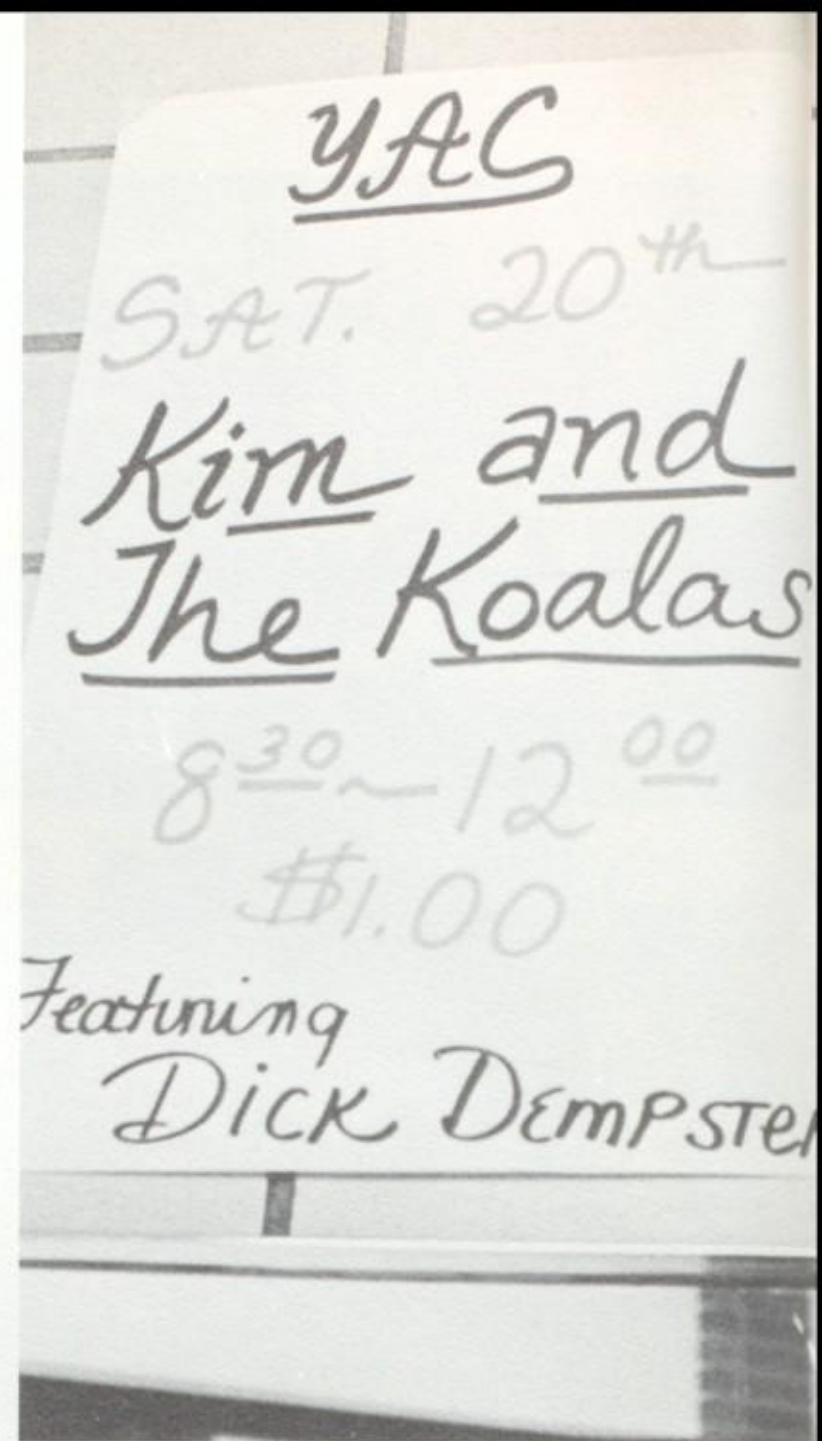 YAC
SAT. 20th
Kim and
The Koalas
8 30 ~ 12 00
$1.00
Featuring
Dick Dempster